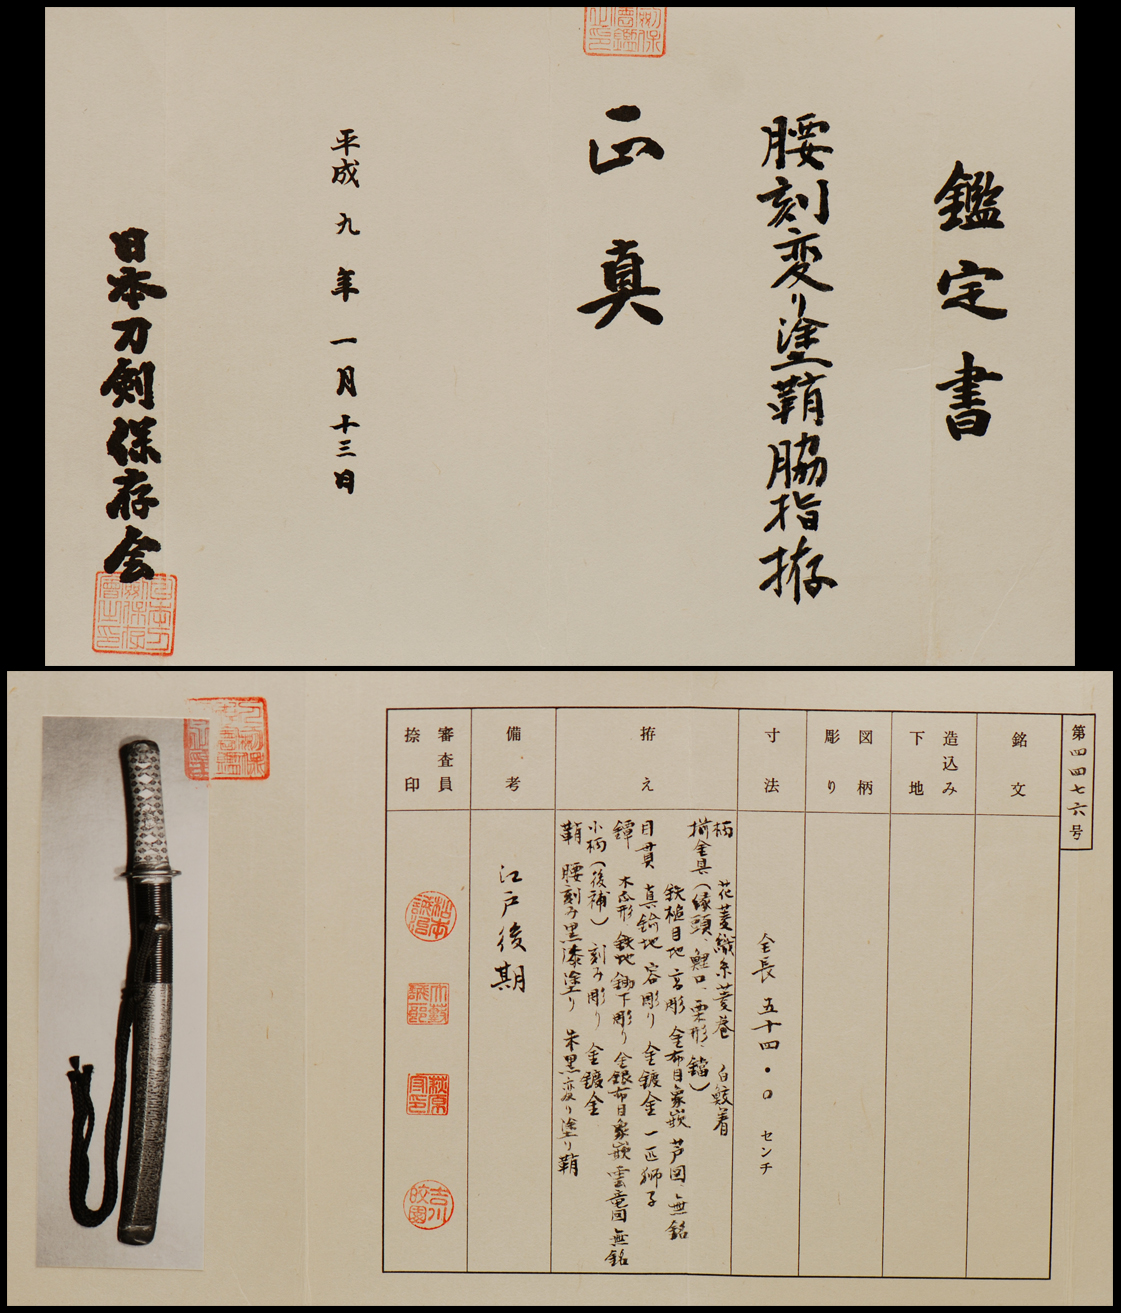 鑑定書
腰刻変り塗鞘脇指拵
正真
平成九年一月十三日
日本刀剣保存会
第四四七六号
銘文
造込み
下地
図柄
彫り
寸法
全長 五十四・〇 センチ
拵え
柄 花菱織糸菱巻 白鮫着
揃金具（縁頭、鯉口、栗形、鐺）
鉄槌目地 高彫 金布目象嵌 芦図 無銘
目貫 真鍮地 容彫り 金鍍金 一匹獅子
鐔 木瓜形 鉄地 鋤下彫り 金銀布目象嵌 雲竜図 無銘
小柄（後補） 刻み彫り 金鍍金
鞘 腰刻み黒漆塗り 朱黒変り塗り鞘
備考
江戸後期
審査員
捺印